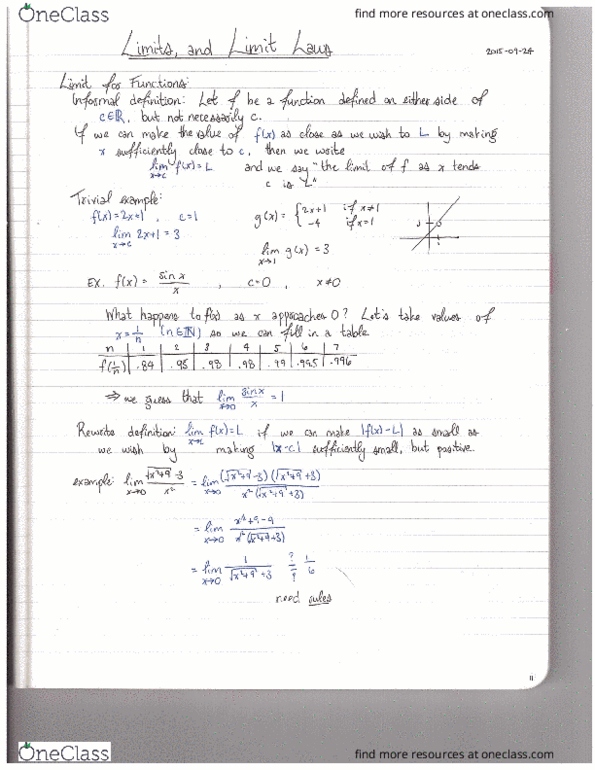 OneClass
find more resources at oneclass.com
Limits, and Limit Laws
2015-09-24
Limit for Functions:
Informal definition: Let f be a function defined on either side of
c∈ℝ, but not necessarily c.
If we can make the value of f(x) as close as we wish to L by making
x sufficiently close to c, then we write
lim x→c f(x)=L and we say "the limit of f as x tends
c is L"
Trivial example:
f(x)=2x+1, c=1
lim x→c 2x+1 = 3
g(x) = { 2x+1 if x≠1
-4 if x=1
lim x→1 g(x) = 3
EX. f(x) = sinx/x , c=0, x≠0
What happens to f(x) as x approaches 0? Let's take values of
x=1/n (n∈ℕ) so we can fill in a table
n 1 2 3 4 5 6 7
f(1/n) .84 .95 .98 .98 .99 .995 .996
⇒ we guess that lim x→0 sinx/x = 1
Rewrite definition: lim x→c f(x)=L if we can make |f(x)-L| as small as
we wish by making |x-c| sufficiently small, but positive.
example: lim x→0 (√(x²+9) -3)/x² = lim x→0 (√(x²+9) -3)(√(x²+9) +3)/(x²(√(x²+9) +3))
= lim x→0 (x²+9-9)/(x²(√(x²+9) +3))
= lim x→0 1/(√(x²+9) +3) ?=? 1/6
need rules
11
OneClass
find more resources at oneclass.com